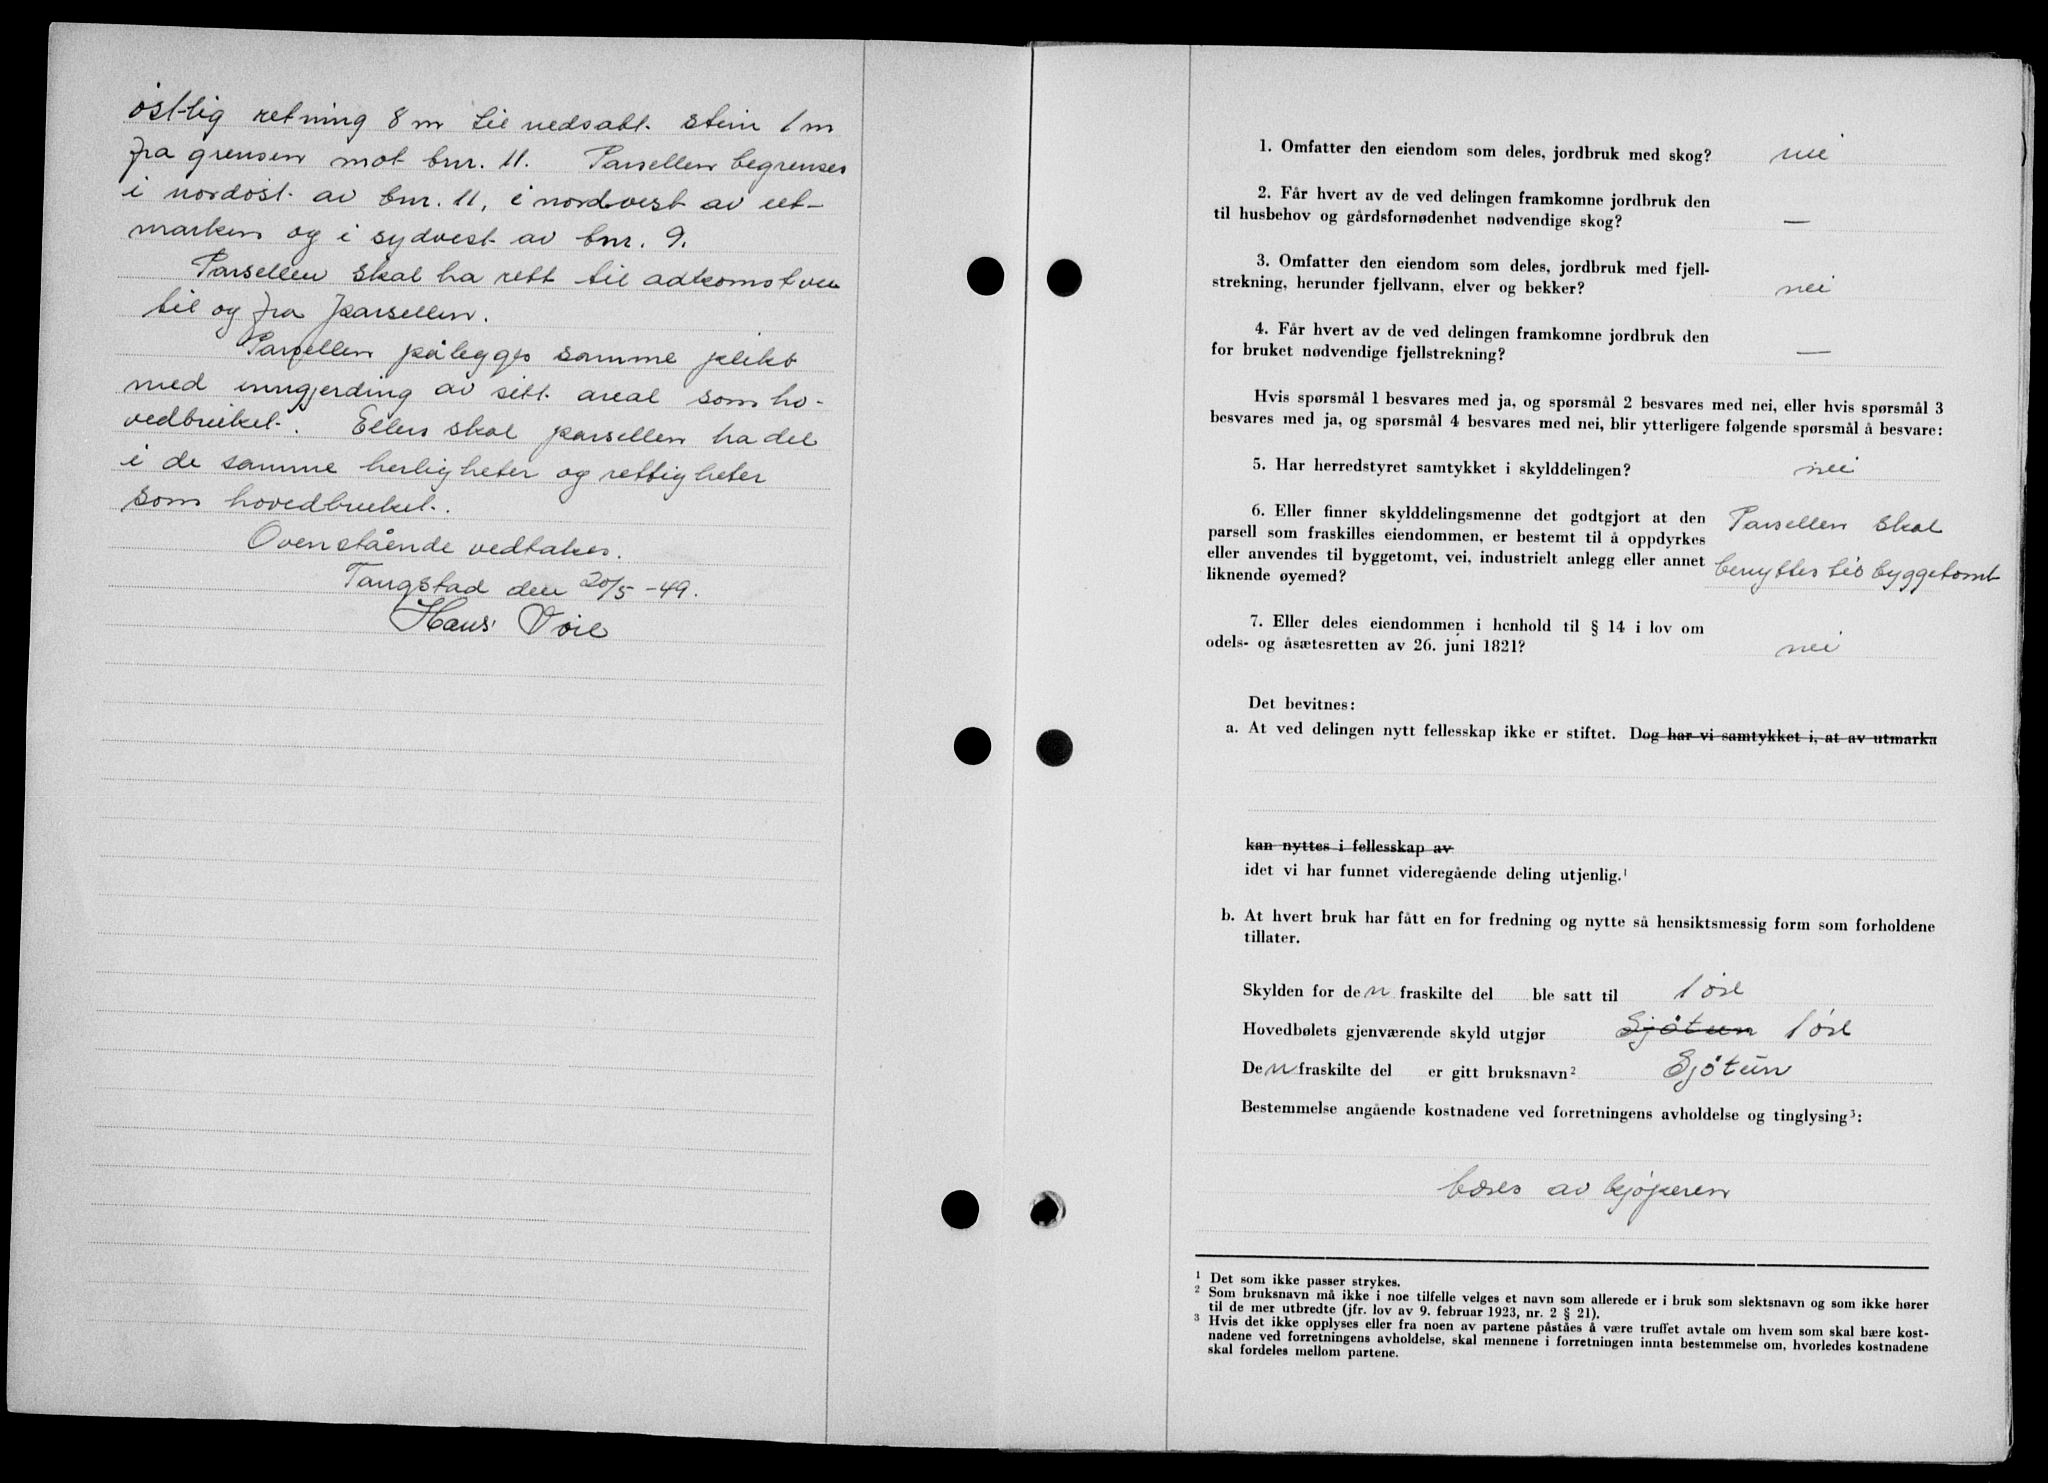 östlig retning 8 m til nedsatt stein 1 m
fra grensen mot bnr. 11. Parsellen begrenses
i nordöst av bnr. 11, i nordvest av ut-
marken og i sydvest av bnr. 9.
Parsellen skal ha rett til adkomstvei
til og fra parsellen.
Parsellen pålegges samme plikt
med inngjerding av sitt areal som ho-
vedbruket. Ellers skal parsellen ha del
i de samme herligheter og rettigheter
som hovedbruket.
Ovenstående vedtakes.
Tangstad den 20/5 -49.
Hans
1. Omfatter den eiendom som deles, jordbruk med skog? nei
2. Får hvert av de ved delingen framkomne jordbruk den
til husbehov og gårdsfornødenhet nødvendige skog? —
3. Omfatter den eiendom som deles, jordbruk med fjell-
strekning, herunder fjellvann, elver og bekker? nei
4. Får hvert av de ved delingen framkomne jordbruk den
for bruket nødvendige fjellstrekning? —
Hvis spørsmål 1 besvares med ja, og spørsmål 2 besvares med nei, eller hvis spørsmål 3
besvares med ja, og spørsmål 4 besvares med nei, blir ytterligere følgende spørsmål å besvare:
5. Har herredstyret samtykket i skylddelingen? nei
6. Eller finner skylddelingsmenne det godtgjort at den
parsell som fraskilles eiendommen, er bestemt til å oppdyrkes
eller anvendes til byggetomt, vei, industrielt anlegg eller annet
liknende øyemed?
Parsellen skal
benyttes til byggetomt
7. Eller deles eiendommen i henhold til § 14 i lov om
odels- og åsætesretten av 26. juni 1821? nei
Det bevitnes:
a. At ved delingen nytt fellesskap ikke er stiftet. Dog har vi samtykket i, at av utmarka
kan nyttes i fellesskap av
idet vi har funnet videregående deling utjenlig.¹
b. At hvert bruk har fått en for fredning og nytte så hensiktsmessig form som forholdene
tillater.
Skylden for den fraskilte del ble satt til 1 öre
Hovedbølets gjenværende skyld utgjør Sjötun 1 öre
Den fraskilte del er gitt bruksnavn² Sjötun
Bestemmelse angående kostnadene ved forretningens avholdelse og tinglysing³:
bæres av kjøperen
¹ Det som ikke passer strykes.
² Som bruksnavn må ikke i noe tilfelle velges et navn som allerede er i bruk som slektsnavn og som ikke hører
til de mer utbredte (jfr. lov av 9. februar 1923, nr. 2 § 21).
³ Hvis det ikke opplyses eller fra noen av partene påståes å være truffet avtale om hvem som skal bære kost-
nadene ved forretningens avholdelse, skal mennene i forretningen innta bestemmelse om, hvorledes kostnadene
skal fordeles mellom partene.